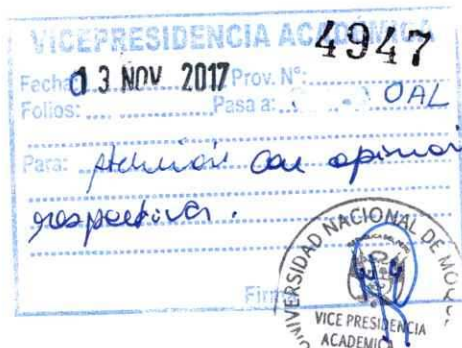 VICEPRESIDENCIA ACADÉMICA
4947
Fecha: 13 NOV 2017 Prov. N°:
Folios: Pasa a: OAL
Para: Atención con opinión
respectiva.
Firma
UNIVERSIDAD NACIONAL DE MOQU
VICE PRESIDENCIA
ACADEMICA